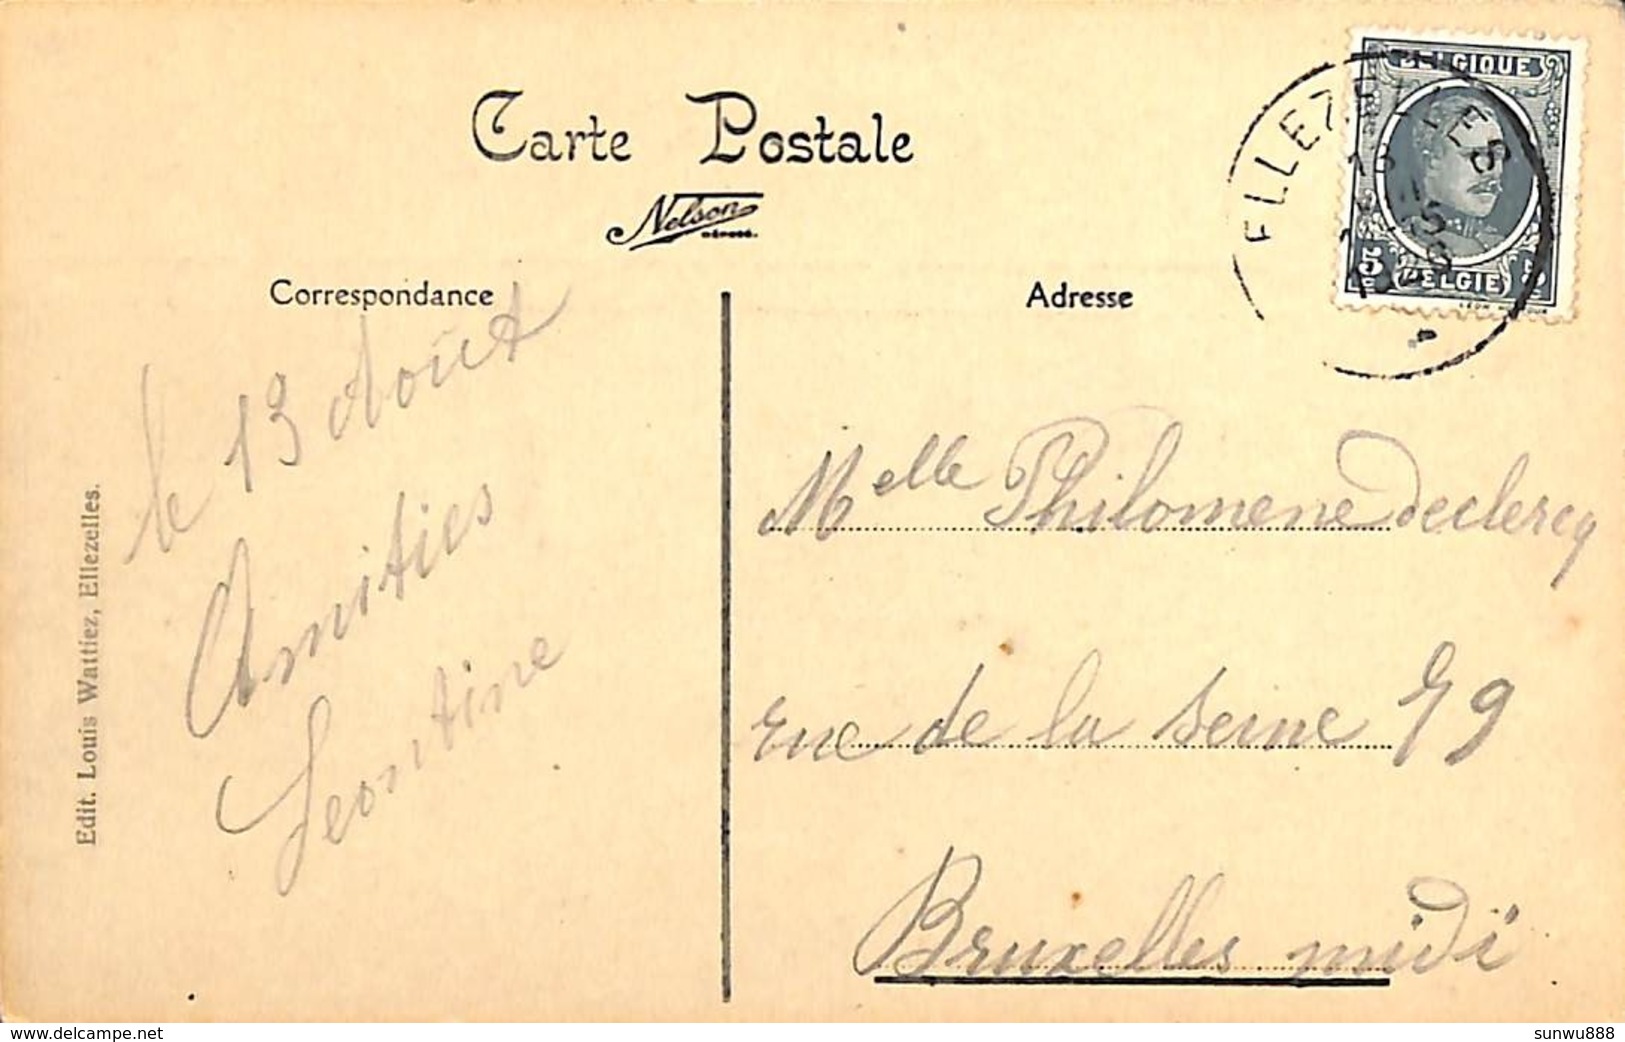 Carte Postale
Nelson
Correspondance
Adresse
ELLEZELLES
BELGIQUE
5
BELGIE
le 13 Août
Amitiés
Leontine
Edit. Louis Wattiez, Ellezelles.
Melle Philomene Declercq
rue de la Seine 79
Bruxelles midi
www.delcampe.net
sunwu888